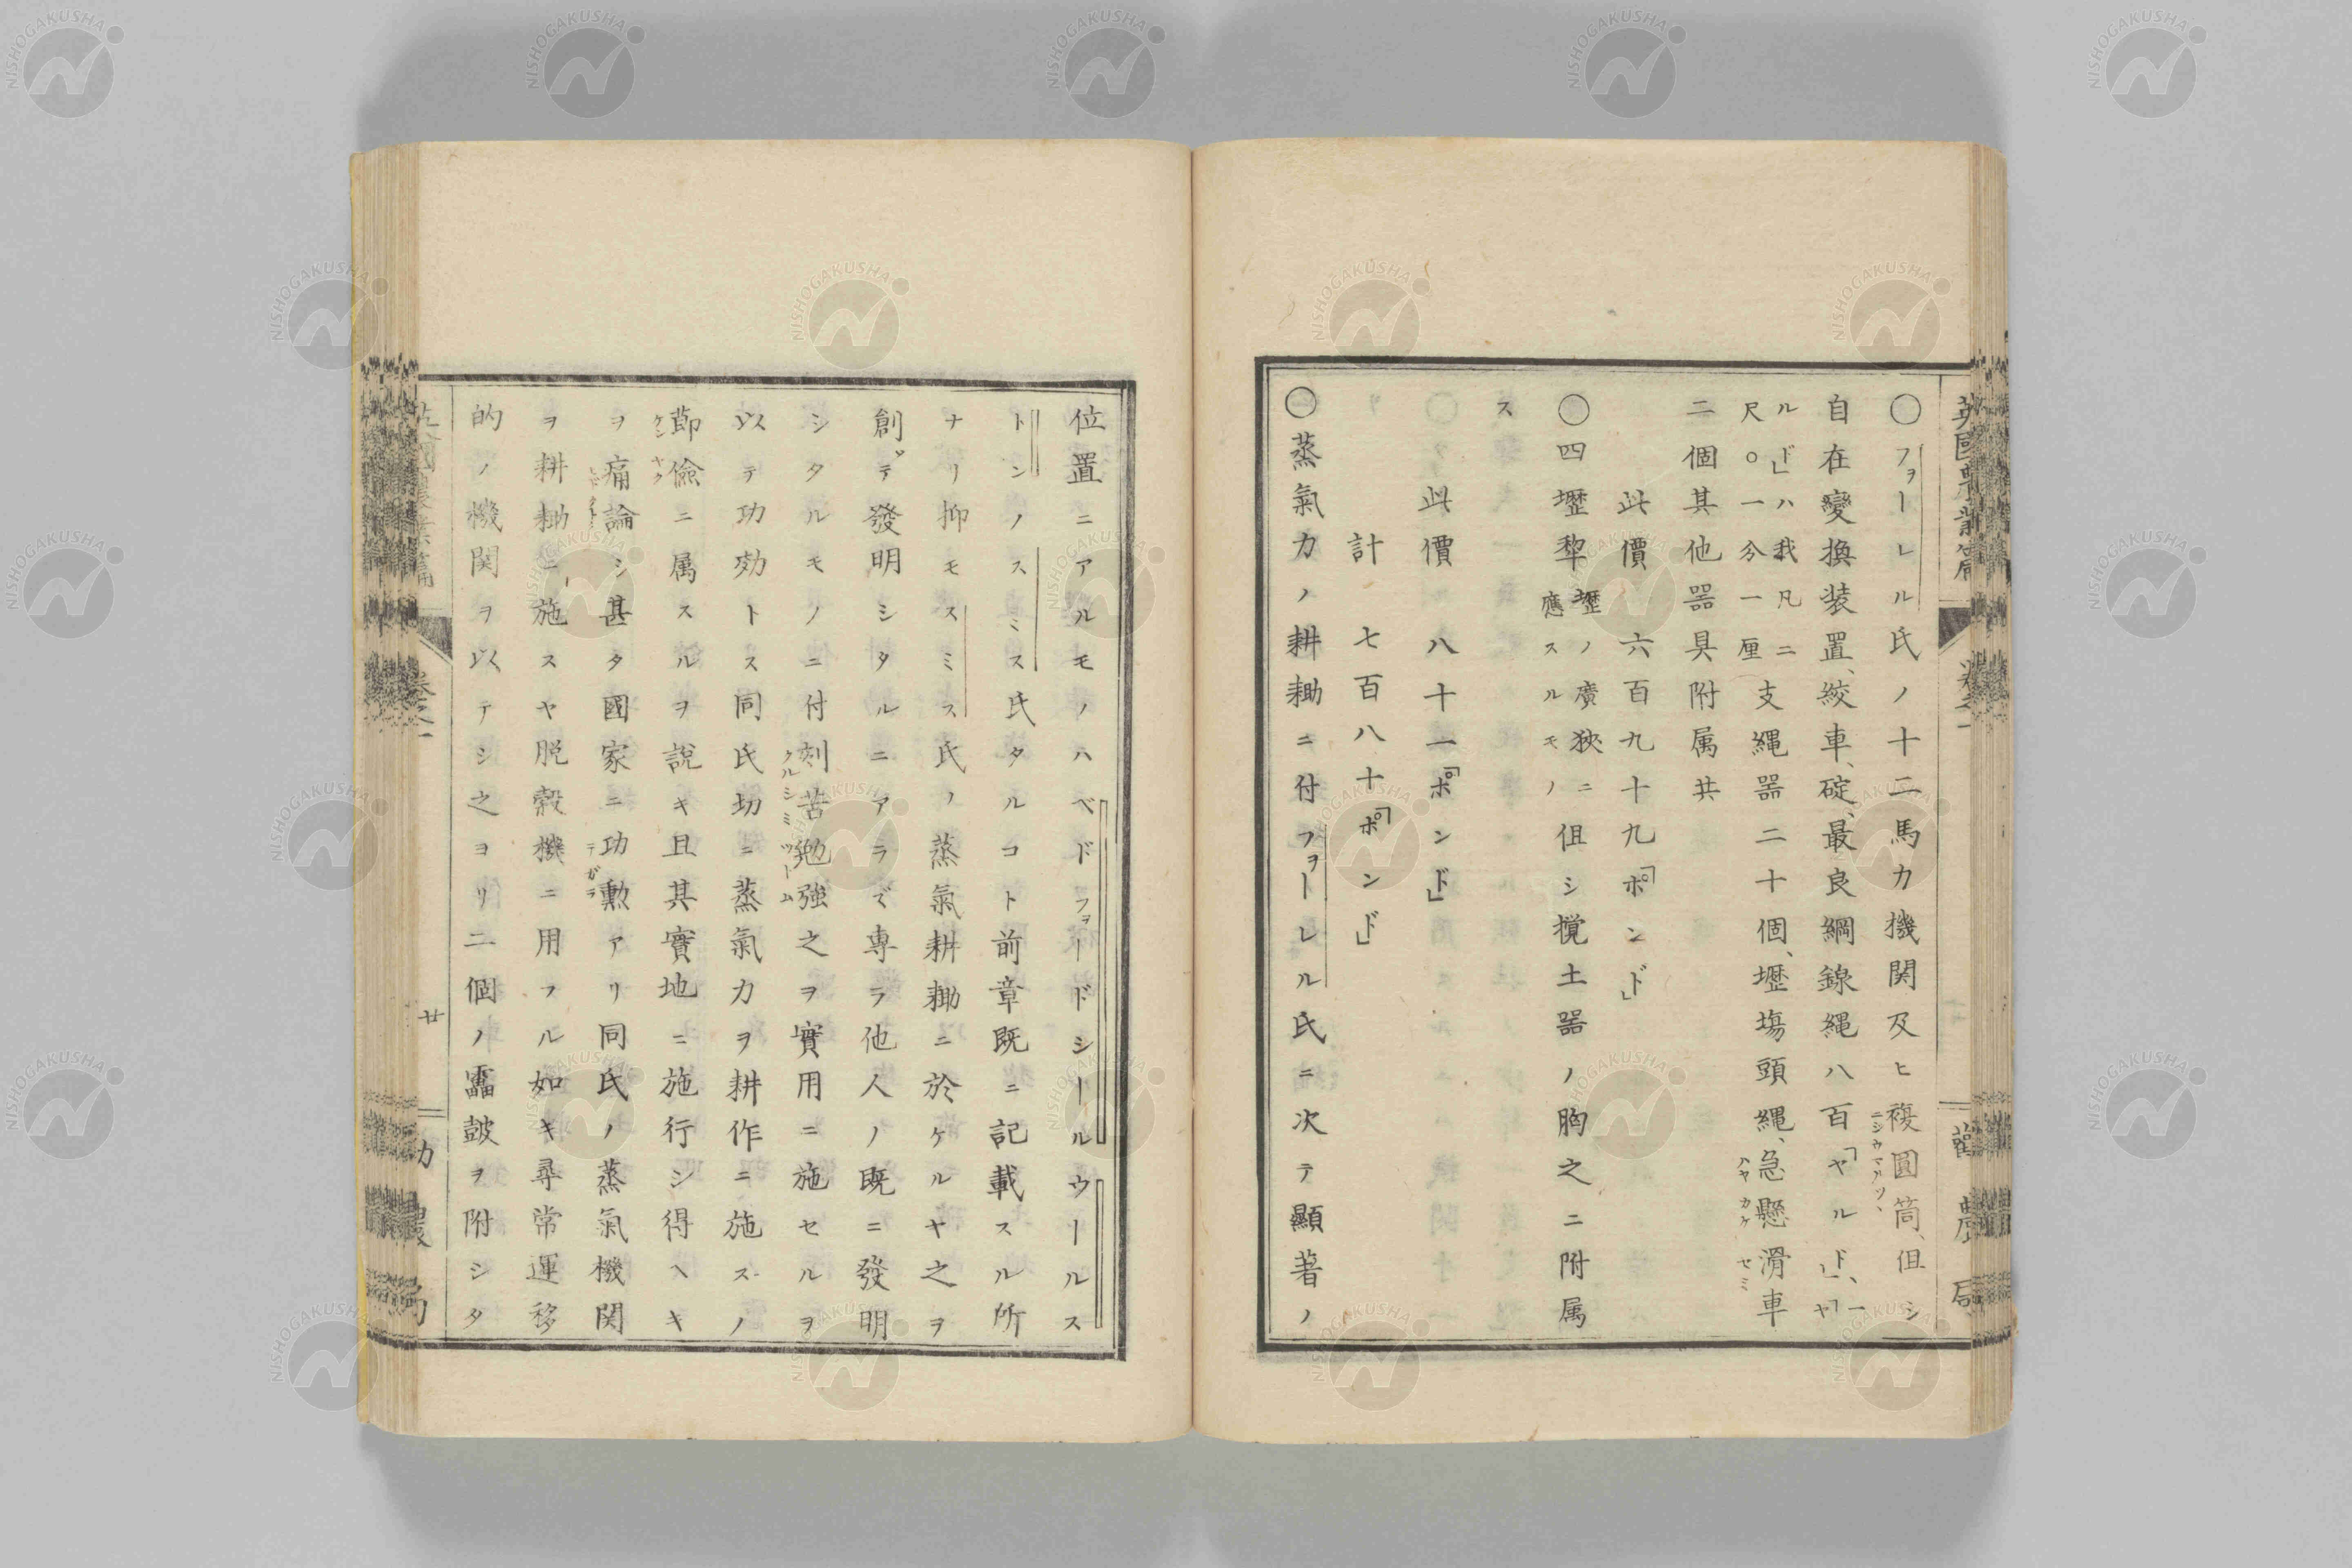 ○フヲーレル氏ノ十二馬力機関及ヒ複圓筒、但シ
ニシウマルツヽ
自在變換装置、絞車、碇、最良綱線縄八百「ヤルド」、一「ヤ
ルド」ハ我凡ニ
尺〇一分一厘
支縄器二十個、壢塲頭縄、急懸滑車
ハヤカケセミ
二個其他器具附属共
此價 六百九十九「ポンド」
○四壢犂
壢ノ廣狹ニ
應スルモノ
但シ攪土器ノ胸之ニ附属
ス
此價 八十一「ポンド」
計 七百八十「ポンド」
○蒸氣力ノ耕耡ニ付フヲーレル氏ニ次テ顯著ノ
位置ニアルモノハベドフヲードシールウールス
トンノスミス氏タルコト前章既ニ記載スル所
ナリ抑モスミス氏ノ蒸氣耕耡ニ於ケルヤ之ヲ
創ツデ發明シタルニアラズ專ラ他人ノ既ニ發明
シタルモノニ付刻苦勉強之ヲ實用ニ施セルヲ
クルシミツーム
以テ功効トス同氏切ニ蒸氣力ヲ耕作ニ施スノ
節儉ニ属スルヲ說キ且其實地ニ施行シ得ヘキ
ケンヤク
ヲ痛論シ甚タ國家ニ功勲アリ同氏ノ蒸氣機関
テガラ
ヲ耕耡ニ施スヤ脱穀機ニ用フル如キ尋常運移
的ノ機関ヲ以テシ之ヨリ二個ノ靁皷ヲ附シタ
廿
NISHOGAKUSHA